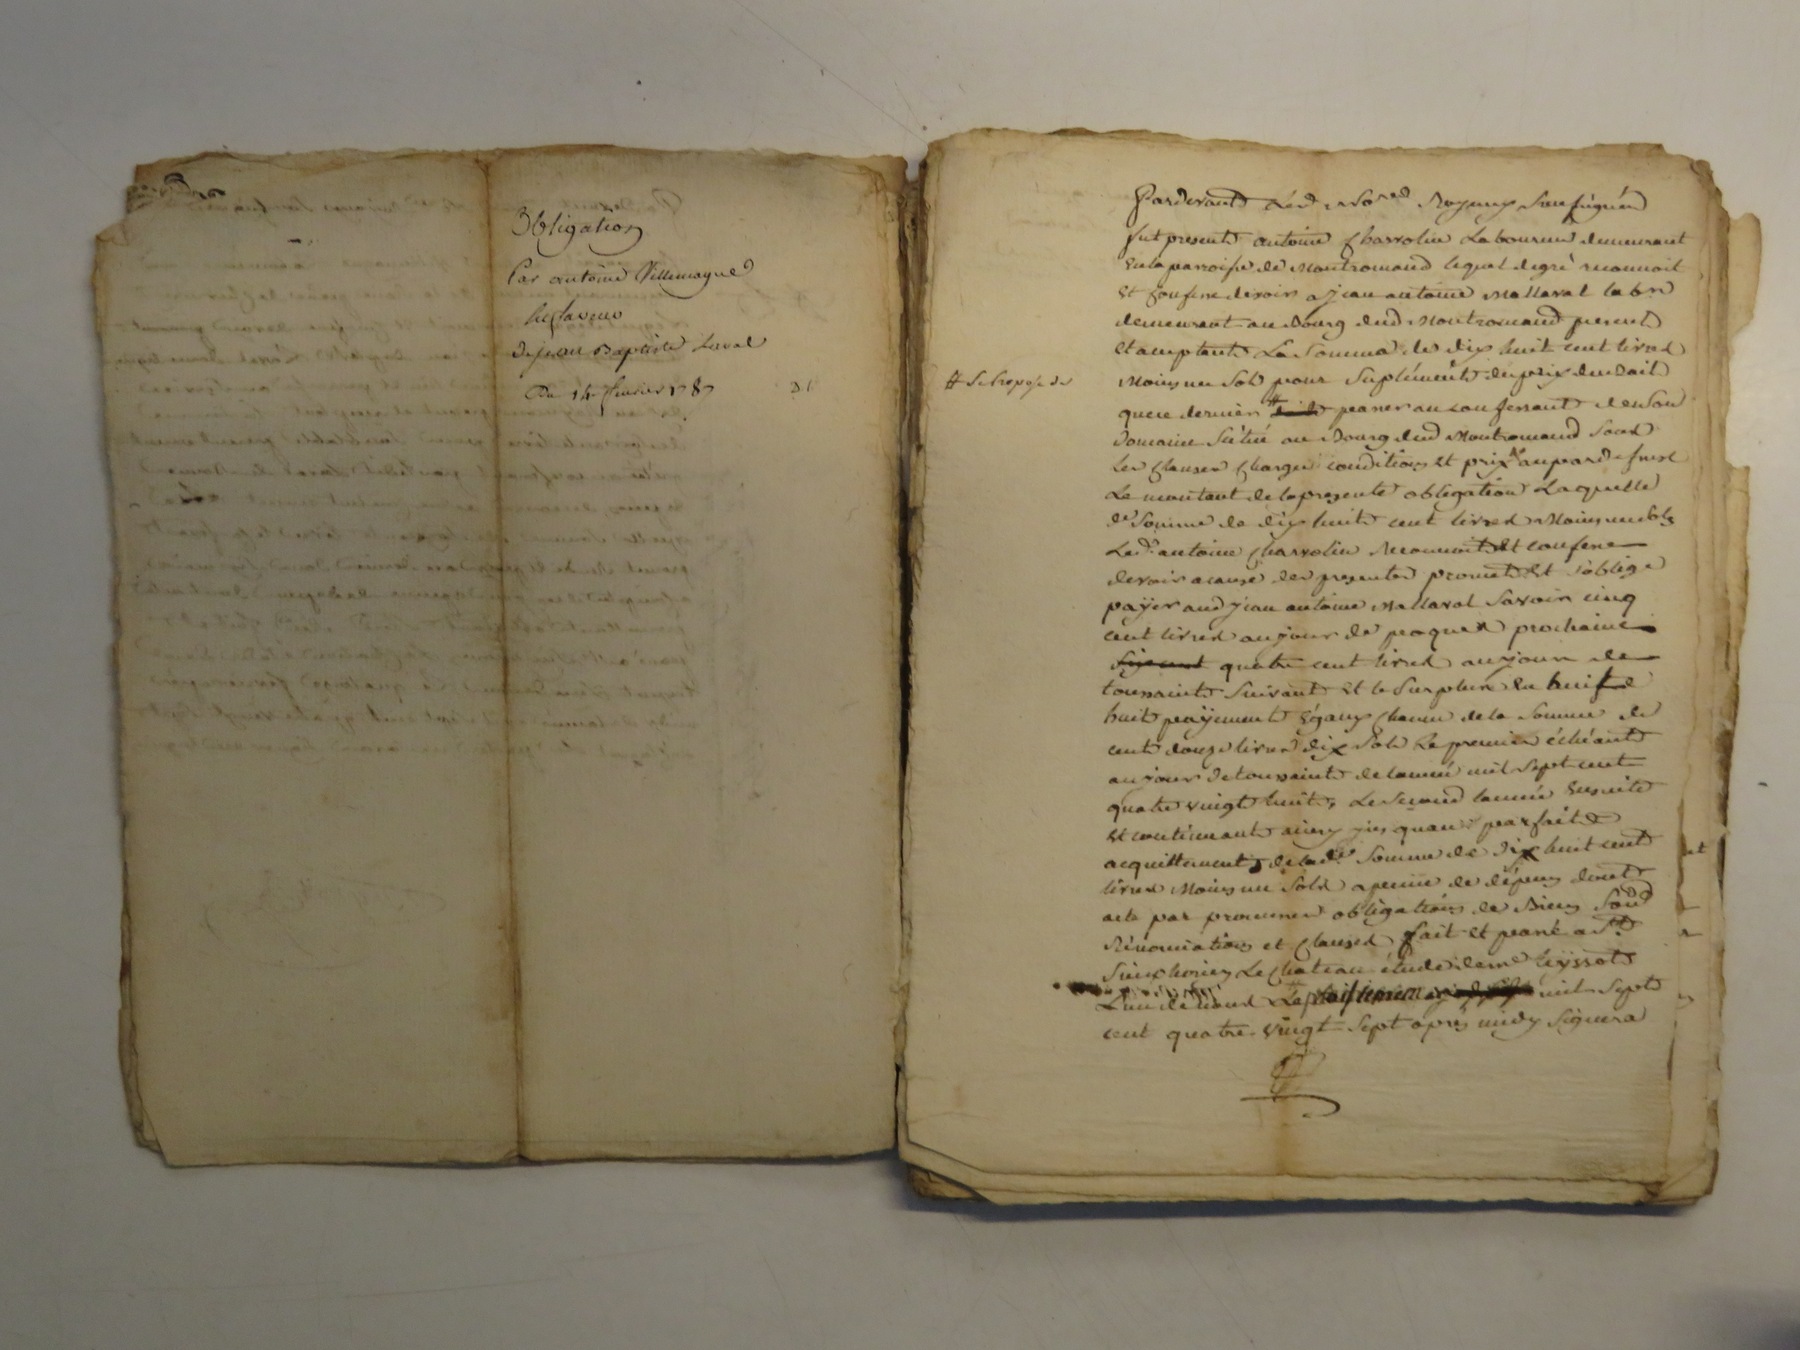 Obligation
Par antoine Villemagne
En faveur
de jean Baptiste Laval
Du 14 fevrier 1787
Pardevant Les No.res Royaux Soussignés
fut present antoine Charrolin Laboureur demeurant
En la parroisse de Montromand lequel degré reconnoit
Et Confesse devoir a jean antoine Mallaval lab.r
demeurant au Bourg dud Montromand present
Et acceptant La Somme de dix huit cent livres
Moins un Sol pour Suplément du prix du
# Se propose de
que ce dernier # passer au Confessant de Son
Domaine Situé au Bourg dud Montromand Sous
Les Clauses Charges conditions Et prix aupardessus
Le montant de la presente obligation Laquelle
de Somme de dix huit cent livres Moins un Sol
Led. antoine Charrolin Reconnoit Et confesse
devoir a cause des presentes promet Et s'oblige
payer aud jean antoine Mallaval Savoir cinq
cent livres au jour de paques prochaine
quatre cent livres au jour de
toussaints Suivant Et le Surplus En huit
huit payements Egaux Chacun de la Somme de
cent douze livres dix Sols Le premier échéant
au jour de toussaints de l'année mil Sept cent
quatre vingt huit, Le Second l'année Ensuite
Et continuant ainsy jusquau parfait
acquittement de lad.e Somme de dix huit cent
livres Moins un Sols a peine de dépens dont
acte par promesses obligations de Biens Soud
Rénonciations et Clauses fait Et passé a S.t
Simphorien Le Chateau étude de me
L'un de nous Le mil Sept
cent quatre vingt Sept après midy Signera